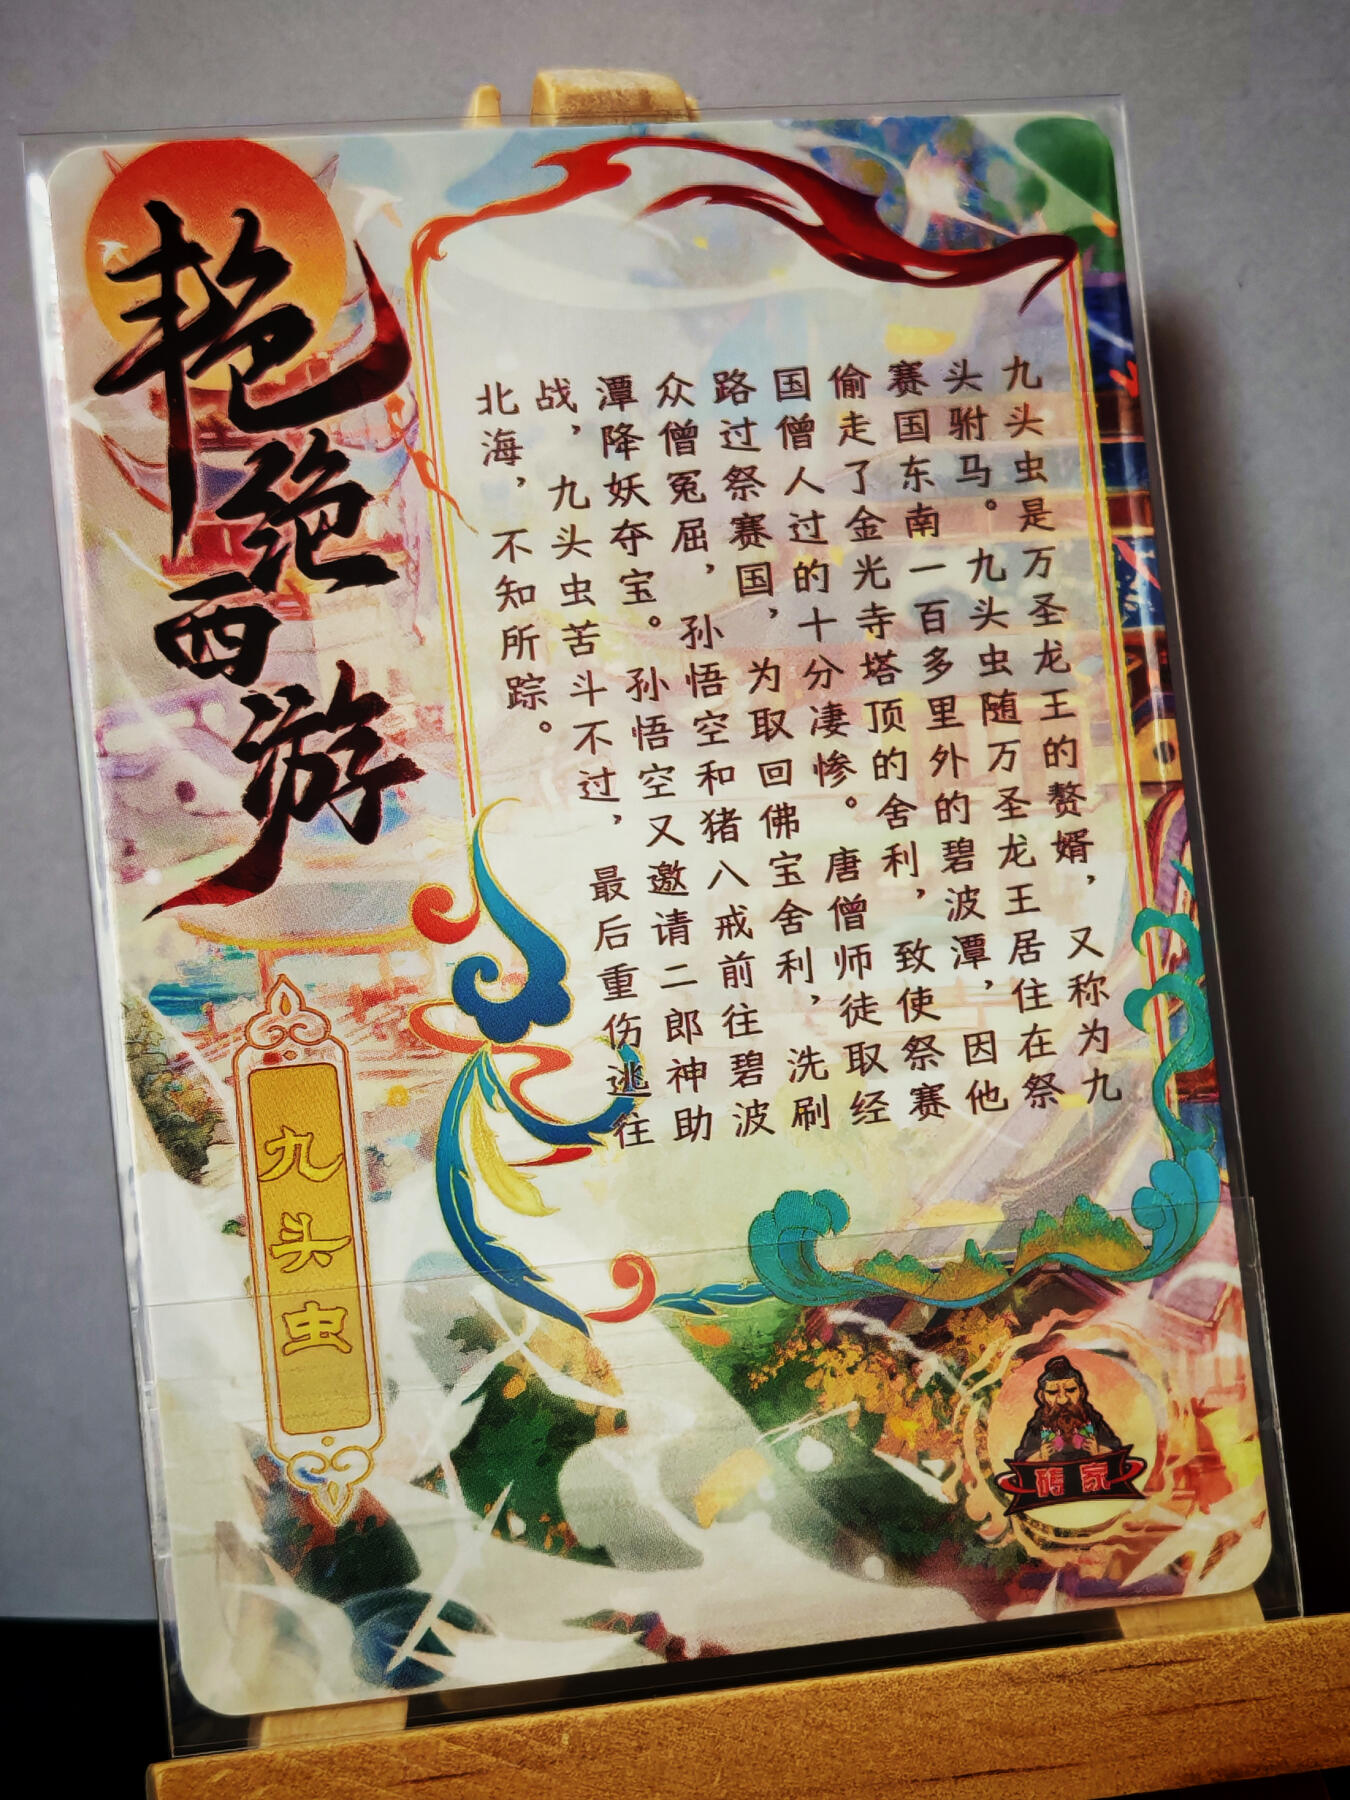 九头虫是万圣龙王的赘婿，又称为九
头驸马。九头虫随万圣龙王居住在祭
赛国东南一百多里外的碧波潭，因他
偷走了金光寺塔顶的舍利，致使祭赛
国僧人过的十分凄惨。唐僧师徒取经
路过祭赛国，为取回佛宝舍利，洗刷
众僧冤屈，孙悟空和猪八戒前往碧波
潭降妖夺宝。孙悟空又邀请二郎神助
战，九头虫苦斗不过，最后重伤逃往
北海，不知所踪。
艳绝西游
九头虫
砖家